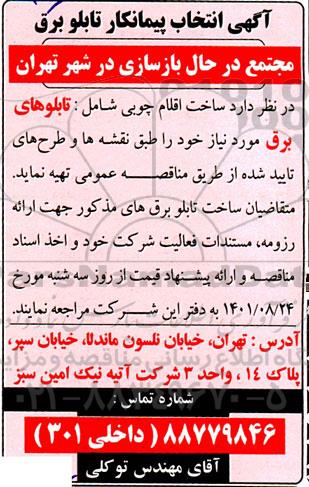 آگهی انتخاب پیمانکار تابلو برق
مجتمع در حال بازسازی در شهر تهران
در نظر دارد ساخت اقلام چوبی شامل : تابلوهای
برق مورد نیاز خود را طبق نقشه ها و طرح‌های
تایید شده از طریق مناقصه عمومی تهیه نماید.
متقاضیان ساخت تابلو برق های مذکور جهت ارائه
رزومه، مستندات فعالیت شرکت خود و اخذ اسناد
مناقصه و ارائه پیشنهاد قیمت از روز سه شنبه مورخ
۱۴۰۱/۰۸/۲۴ به دفتر این شرکت مراجعه نمایند.
آدرس : تهران، خیابان نلسون ماندلا، خیابان سپر،
پلاک ۱۴ ، واحد ۳ شرکت آتیه نیک امین سبز
شماره تماس :
۸۸۷۷۹۸۴۶ ( داخلی ۳۰۱ )
آقای مهندس توکلی